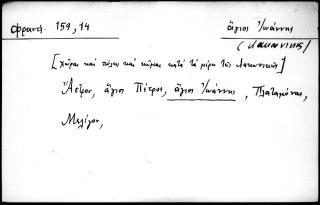 Φραντ. 159, 14 ἅγιος Ἰωάννης
(Λακωνικῆς)
[χῶραι καὶ πόλεις καὶ κῶμαι κατὰ τὰ μέρη τῆς Λακωνικῆς]
Ἄστρον, ἅγιος Πέτρος, ἅγιος Ἰωάννης, Πλάταμόνας,
Μελίγον,